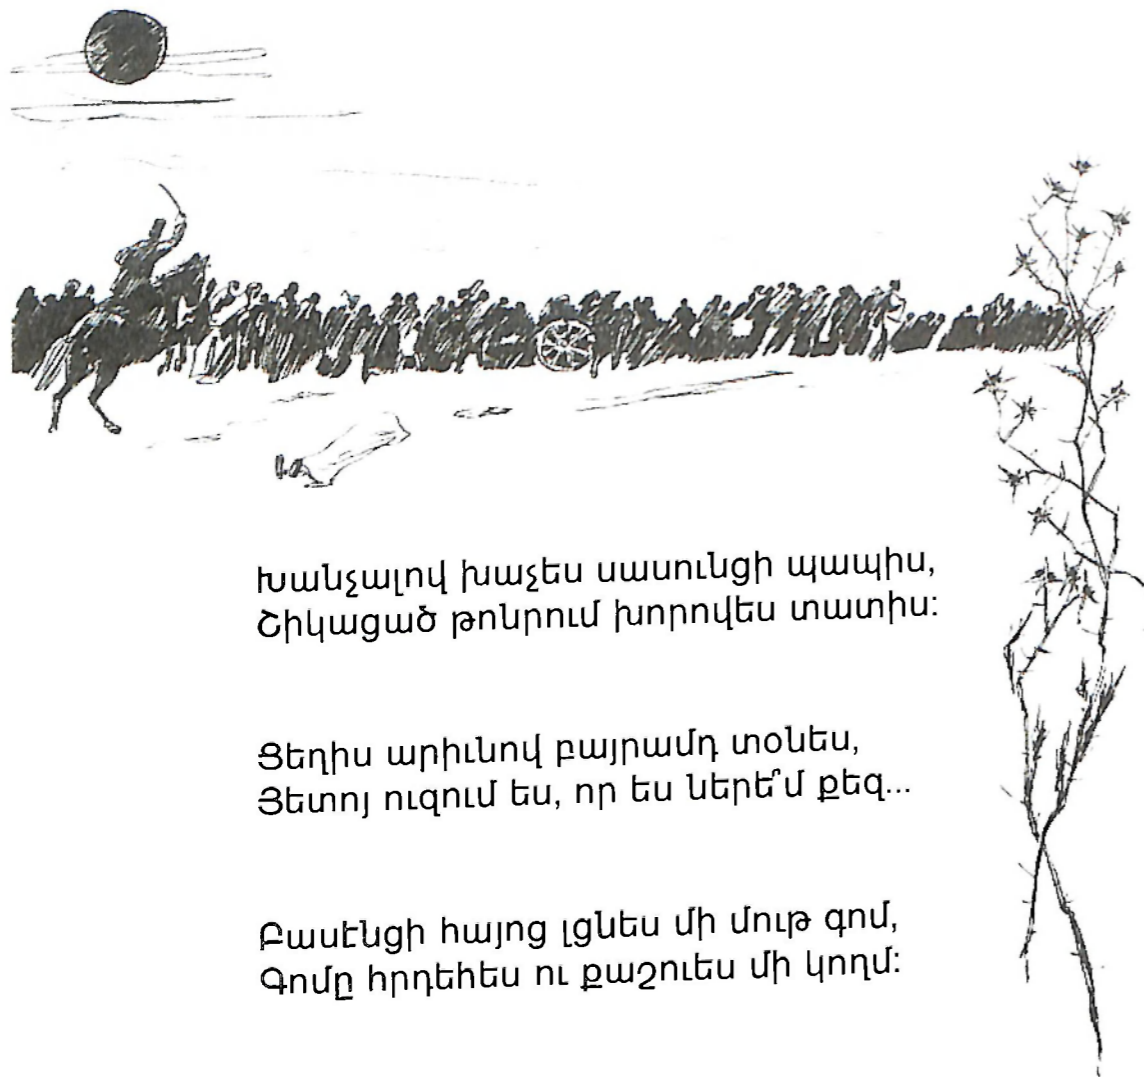 Խանչալով խաչես սասունցի պապիս,
Շիկացած թոնրում խորովես տատիս:
Ցեղիս արիւնով բայրամդ տօնես,
Յետոյ ուզում ես, որ ես ներե՞մ քեզ...
Բասէնցի հայոց լցնես մի մութ գոմ,
Գոմը հրդեհես ու քաշուես մի կողմ: